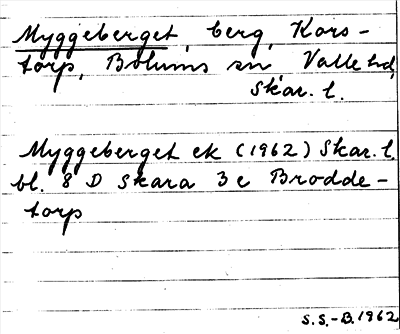 Myggeberget, berg, Kors-
torp, Bolums sn Valle hd,
Skar. l.
Myggeberget ek (1962) Skar. l.
bl. 8 D Skara 3 e Brodde-
torp
S.S.-B. 1962